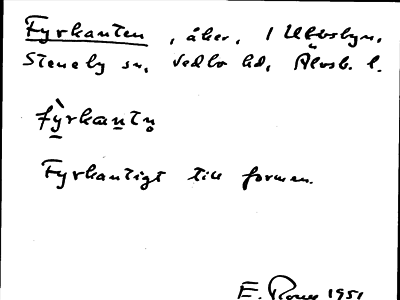 Fyrkanten, åker, i Ulvsbyn,
Steneby sn, Vedbo hd, Älvsb. l.
fỳ̱rkan̲tn̥
Fyrkantigt till formen.
E. 1951